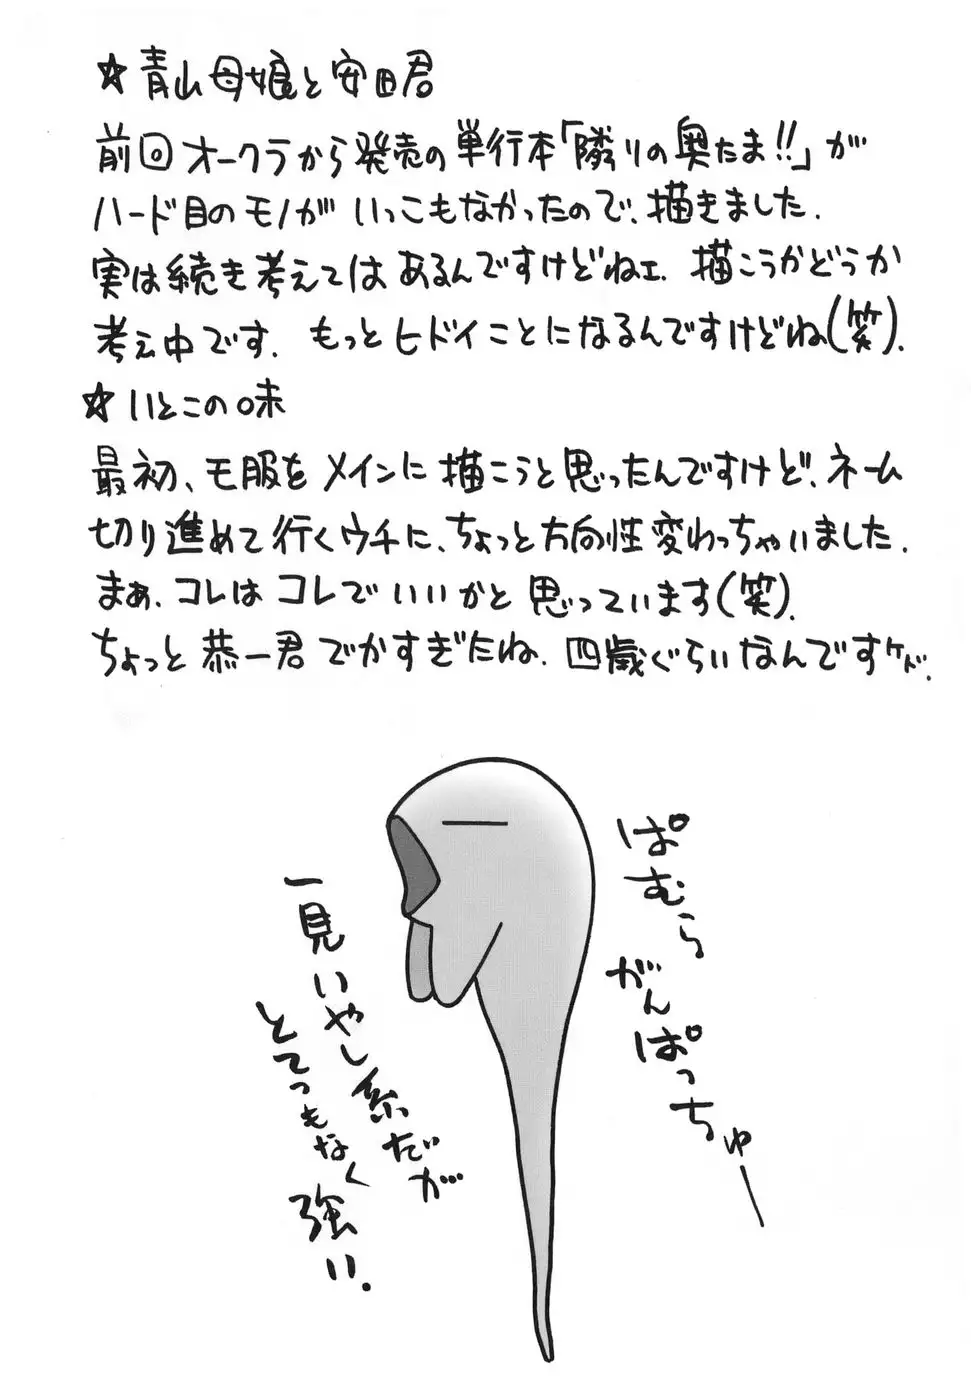 ☆青山母娘と安田君
前回オークラから発売の単行本「隣りの奥たま!!」が
ハード目のモノがいっこもなかったので、描きました.
実は続き考えてはあるんですけどねェ. 描こうかどうか
考え中です. もっとヒドイことになるんですけどね(笑).
☆いとこの味
最初、モ服をメインに描こうと思ったんですけど、ネーム
切り進めて行くウチに、ちょっと方向性変わっちゃいました.
まぁ、コレはコレでいいかと思っています(笑).
ちょっと恭一君でかすぎたね. 四歳ぐらいなんですケド.
ぱむら
がんぱっちゅー
一見いやし系だが…
とてつもなく
強い.